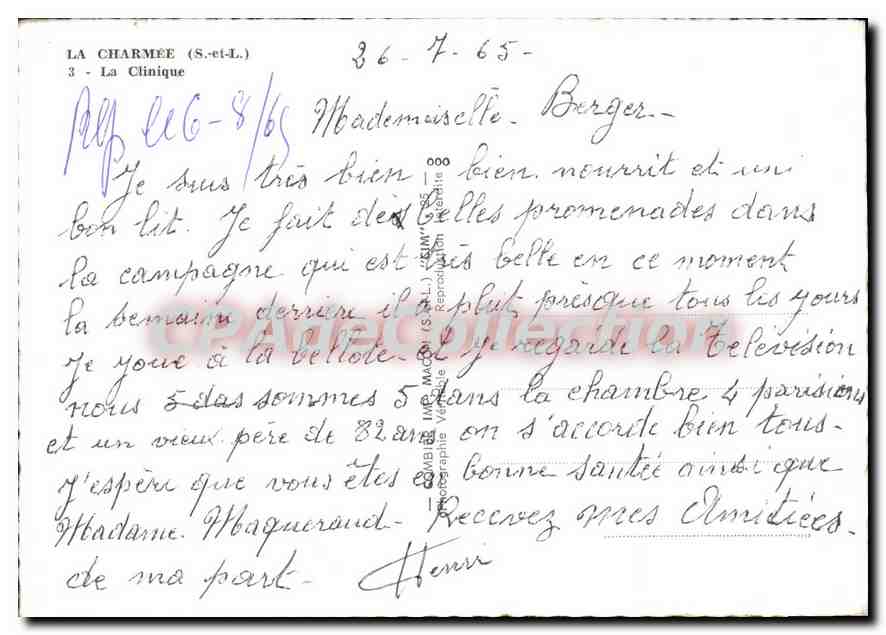 LA CHARMÉE (S.-et-L.)
3 - La Clinique
26-7-65-
Rép le 6-8/65
Mademoiselle. Berger-
Je suis très bien, bien nourrit et uni
bon lit. Je fait des belles promenades dans
la campagne qui est très belle en ce moment
la semaini derrière il a plut presque tous lis yours
Je youe à la bellote et Je regarde la Television
nous 5 das sommes 5 dans la chambre 4 parisiens
et un vieux père de 82 ans on s'accorde bien tous-
J'espère que vous êtes en bonne santée ainsi que
Madame. Maqueraud- Recevez mes Amitiées-
de ma part- Henri
— COMBIER IMP. MACON (S.-&-L.) "CIM" —
Photographie Véritable - Reproduction Interdite
CPAdeCollection